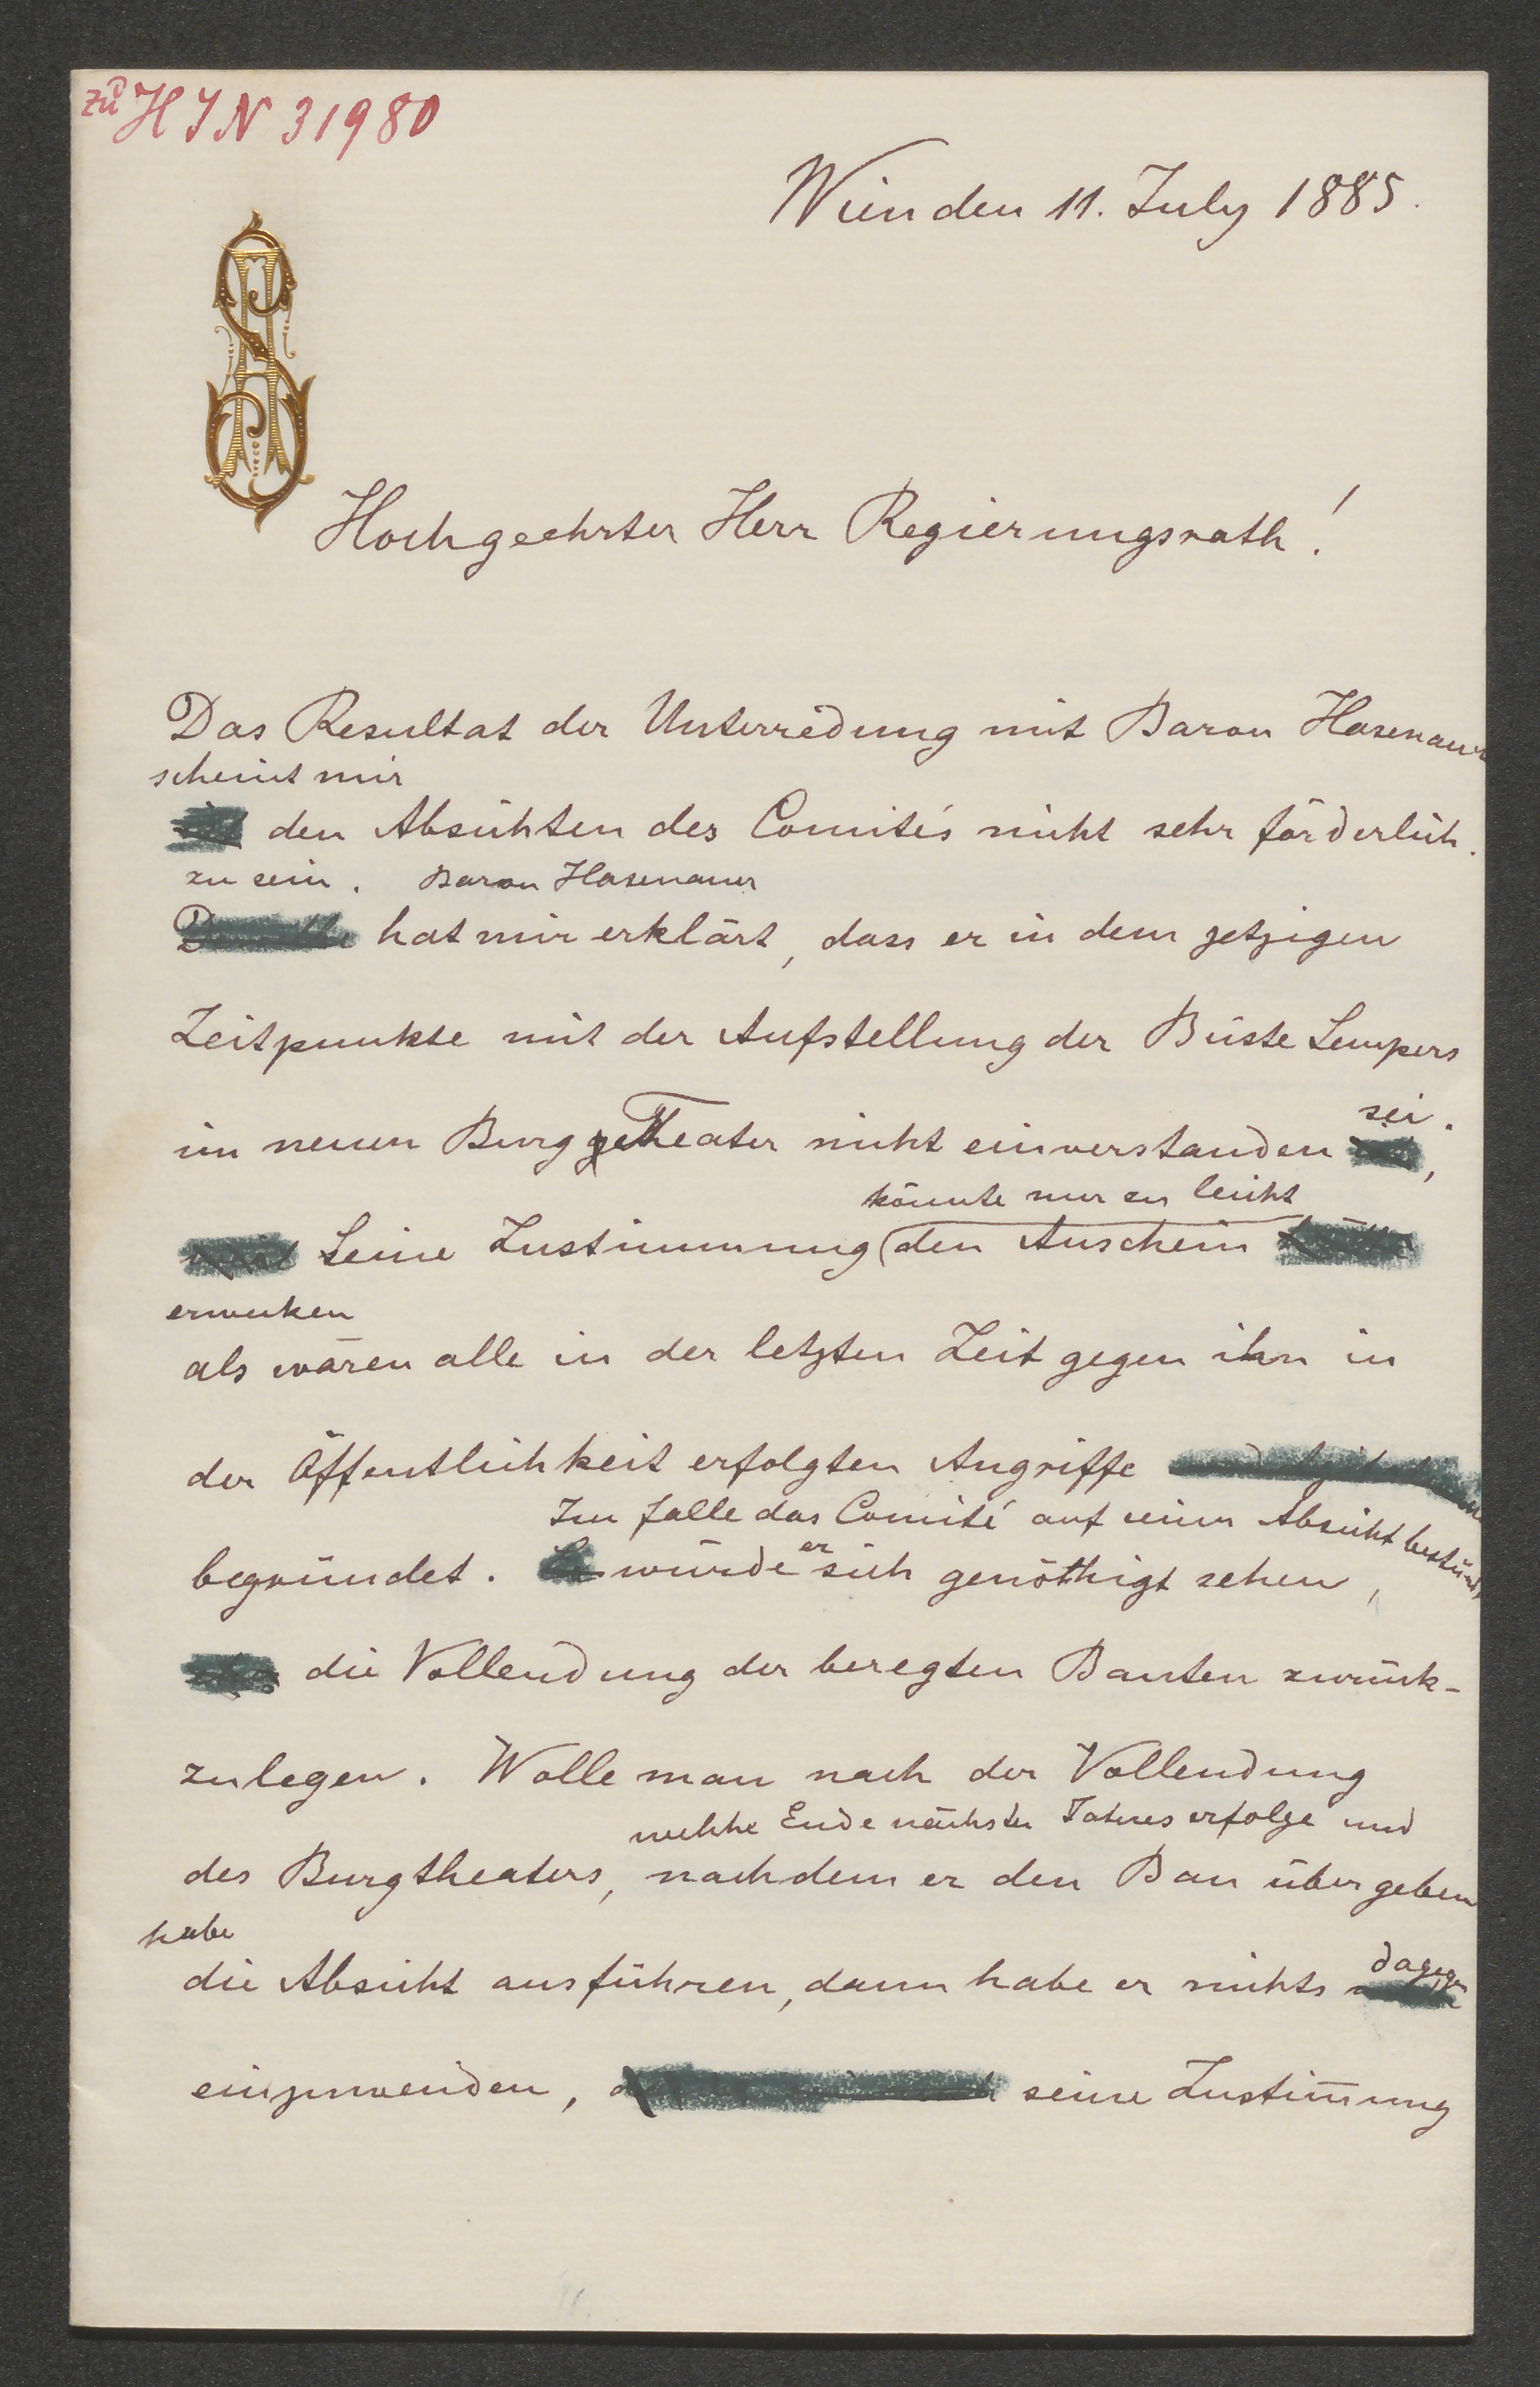 zu HIN 31980
Wien den 11. July 1885.
Hochgeehrter Herr Regierungsrath!
Das Resultat der Unterredung mit Baron Hasenauer
scheint mir
den Absichten des Comités nicht sehr förderlich.
zu sein. Baron Hasenauer
hat mir erklärt, dass er in dem jetzigen
Zeitpunkte mit der Aufstellung der Büste Sempers
sei.
im neuen Burg Theater nicht einverstanden
könnte nur zu leicht
Seine Zustimmung (den Anschein
erwecken
als wären alle in der letzten Zeit gegen ihn in
der Öffentlichkeit erfolgten Angriffe
Im falle das Comité auf seiner Absicht bestünde
begründet. würde er sich genöthigt sehen,
die Vollendung der beregten Bauten zurück-
zulegen. Wolle man nach der Vollendung
welche Ende nächsten Jahres erfolge und
des Burgtheaters, nachdem er den Bau übergeben
habe
die Absicht ausführen, dann habe er nichts dagegen
einzuwenden, seine Zustim̄ung